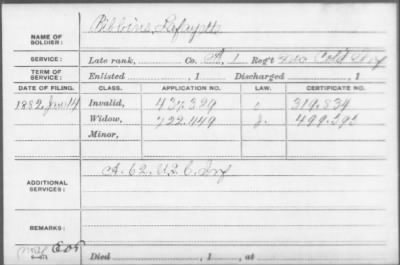 NAME OF SOLDIER: Bibbins, Lafayette
SERVICE: Late rank, Co. A, 1 Reg't Cold Inf
TERM OF SERVICE: Enlisted , 1 Discharged , 1
DATE OF FILING. CLASS. APPLICATION NO. LAW. CERTIFICATE NO.
1882, Jan 14 Invalid, 437.329 319.834
Widow, 722.449 499.292
Minor,
ADDITIONAL SERVICES: A. 62. U.S.C. Inf
REMARKS:
Died , 1 , at